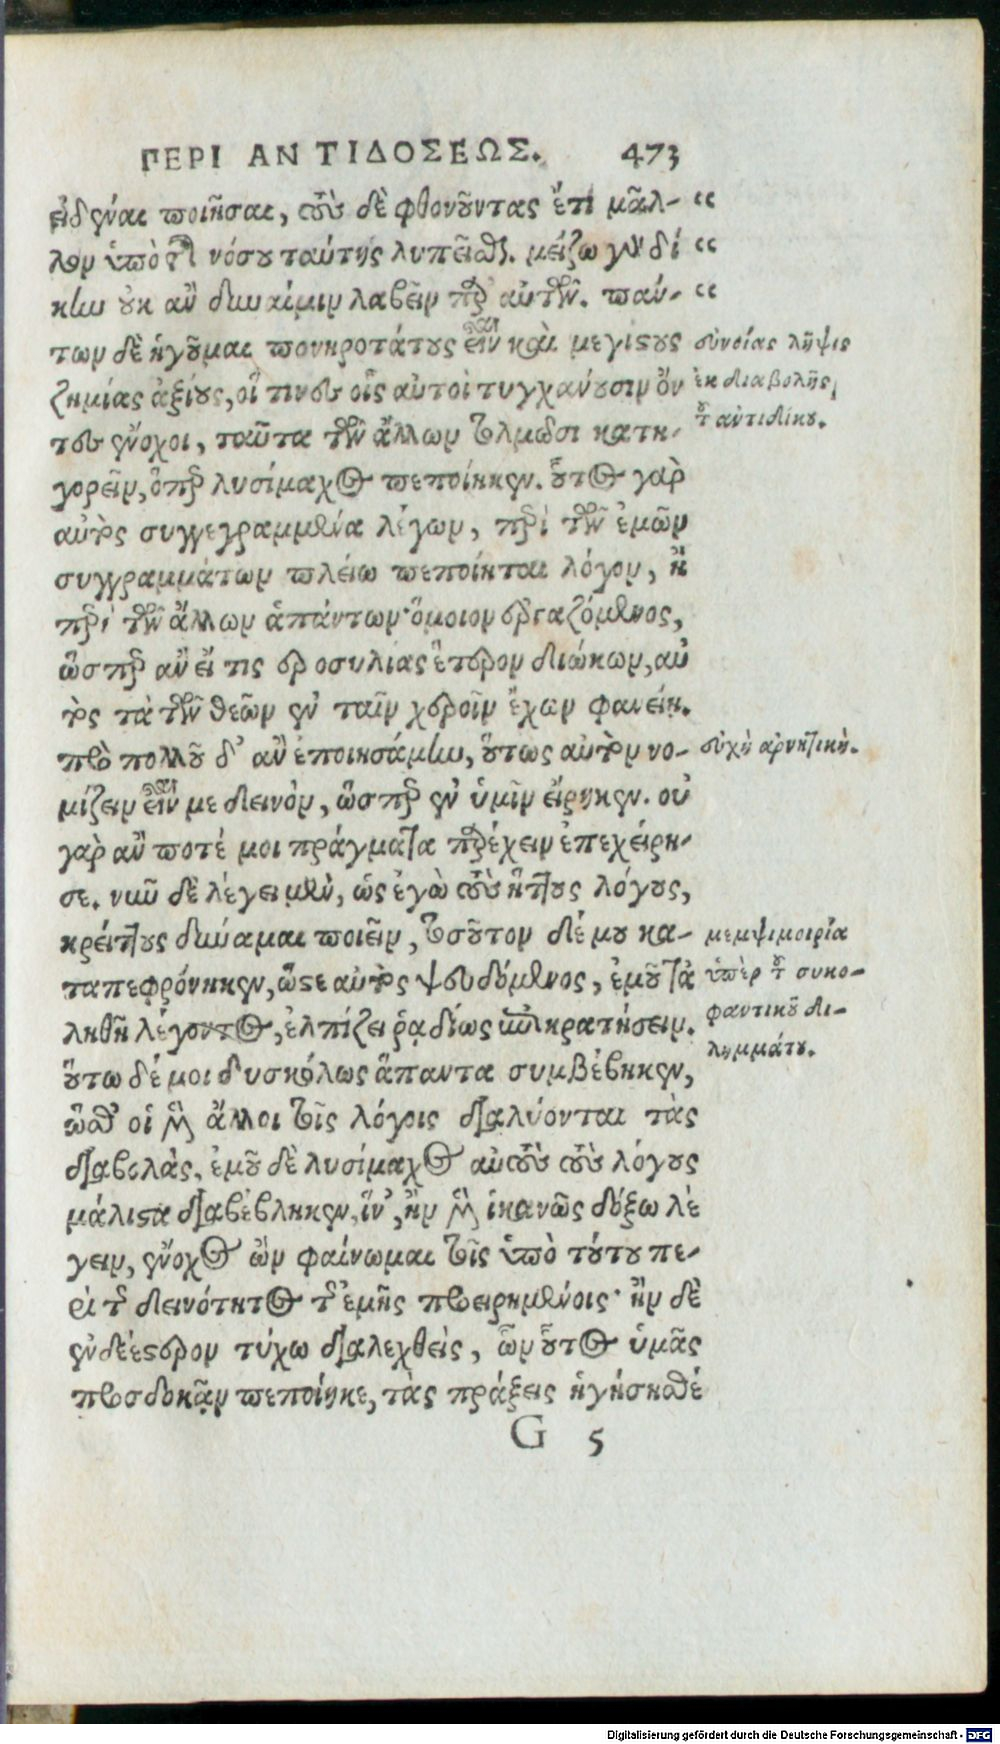 ΠΕΡΙ ΑΝΤΙΔΟΣΕΩΣ. 473
εἰδέναι ποιῆσαι, τοὺς δὲ φθονοῦντας ἔτι μᾶλ- “
λον ὑπὸ τῆς νόσου ταύτης λυπεῖσθαι. μείζω γὰρ δί “
κην οὐκ ἂν δυναίμην λαβεῖν παρ' αὐτῶν. πάν- “
των δὲ ἡγοῦμαι πονηροτάτους εἶναι καὶ μεγίστους
ζημίας ἀξίους, οἵ τινες οἷς αὐτοὶ τυγχάνουσιν ὄν
τες ἔνοχοι, ταῦτα τῶν ἄλλων τολμῶσι κατη-
γορεῖν, ὅπερ λυσίμαχος πεποίηκεν. οὗτος γὰρ
αὐτὸς συγγεγραμμένα λέγων, περὶ τῶν ἐμῶν
συγγραμμάτων πλείω πεποίηται λόγον, ἢ
περὶ τῶν ἄλλων ἁπάντων· ὅμοιον ἐργαζόμενος,
ὥσπερ ἂν εἴ τις ἱεροσυλίας ἕτερον διώκων, αὐ
τὸς τὰ τῶν θεῶν ἐν ταῖν χεροῖν ἔχων φανείη.
πρὸ πολλοῦ δ' ἂν ἐποιησάμην, οὕτως αὐτὸν νο-
μίζειν εἶναι με δεινὸν, ὥσπερ ἐν ὑμῖν εἴρηκεν. οὐ
γὰρ ἄν ποτέ μοι πράγματα παρέχειν ἐπεχείρη-
σε. νῦν δὲ λέγει μὲν, ὡς ἐγὼ τοὺς ἥττους λόγους,
κρείττους δύναμαι ποιεῖν, τοσοῦτον δέ μου κα-
ταπεφρόνηκεν, ὥστε αὐτὸς ψευδόμενος, ἐμοῦ τἀ
ληθῆ λέγοντος, ἐλπίζει ῥαδίως ἐπικρατήσειν.
οὕτω δέ μοι δυσκόλως ἅπαντα συμβέβηκεν,
ὥσθ' οἱ μὲν ἄλλοι τοῖς λόγοις διαλύονται τὰς
διαβολὰς, ἐμοῦ δὲ λυσίμαχος αὐτοὺς τοὺς λόγους
μάλιστα διαβέβληκεν, ἵν', ἢν μὲν ἱκανῶς δόξω λέ
γειν, ἔνοχος ὢν φαίνωμαι τοῖς ὑπὸ τούτου πε-
ρὶ τῆς δεινότητος τῆς ἐμῆς προειρημένοις· ἢν δὲ
ἐνδεέστερον τύχω διαλεχθεὶς, ὧν οὗτος ὑμᾶς
προσδοκᾷν πεποίηκε, τὰς πράξεις ἡγήσησθέ
G 5
συνοίας λῆψις
ἐκ διαβολῆς
τοῦ ἀντιδίκου.
εὐχὴ ἀρνητικὴ.
μεμψιμοιρία
ὑπὲρ τοῦ συκο-
φαντικοῦ δι-
λημμάτου.
Digitalisierung gefördert durch die Deutsche Forschungsgemeinschaft - DFG